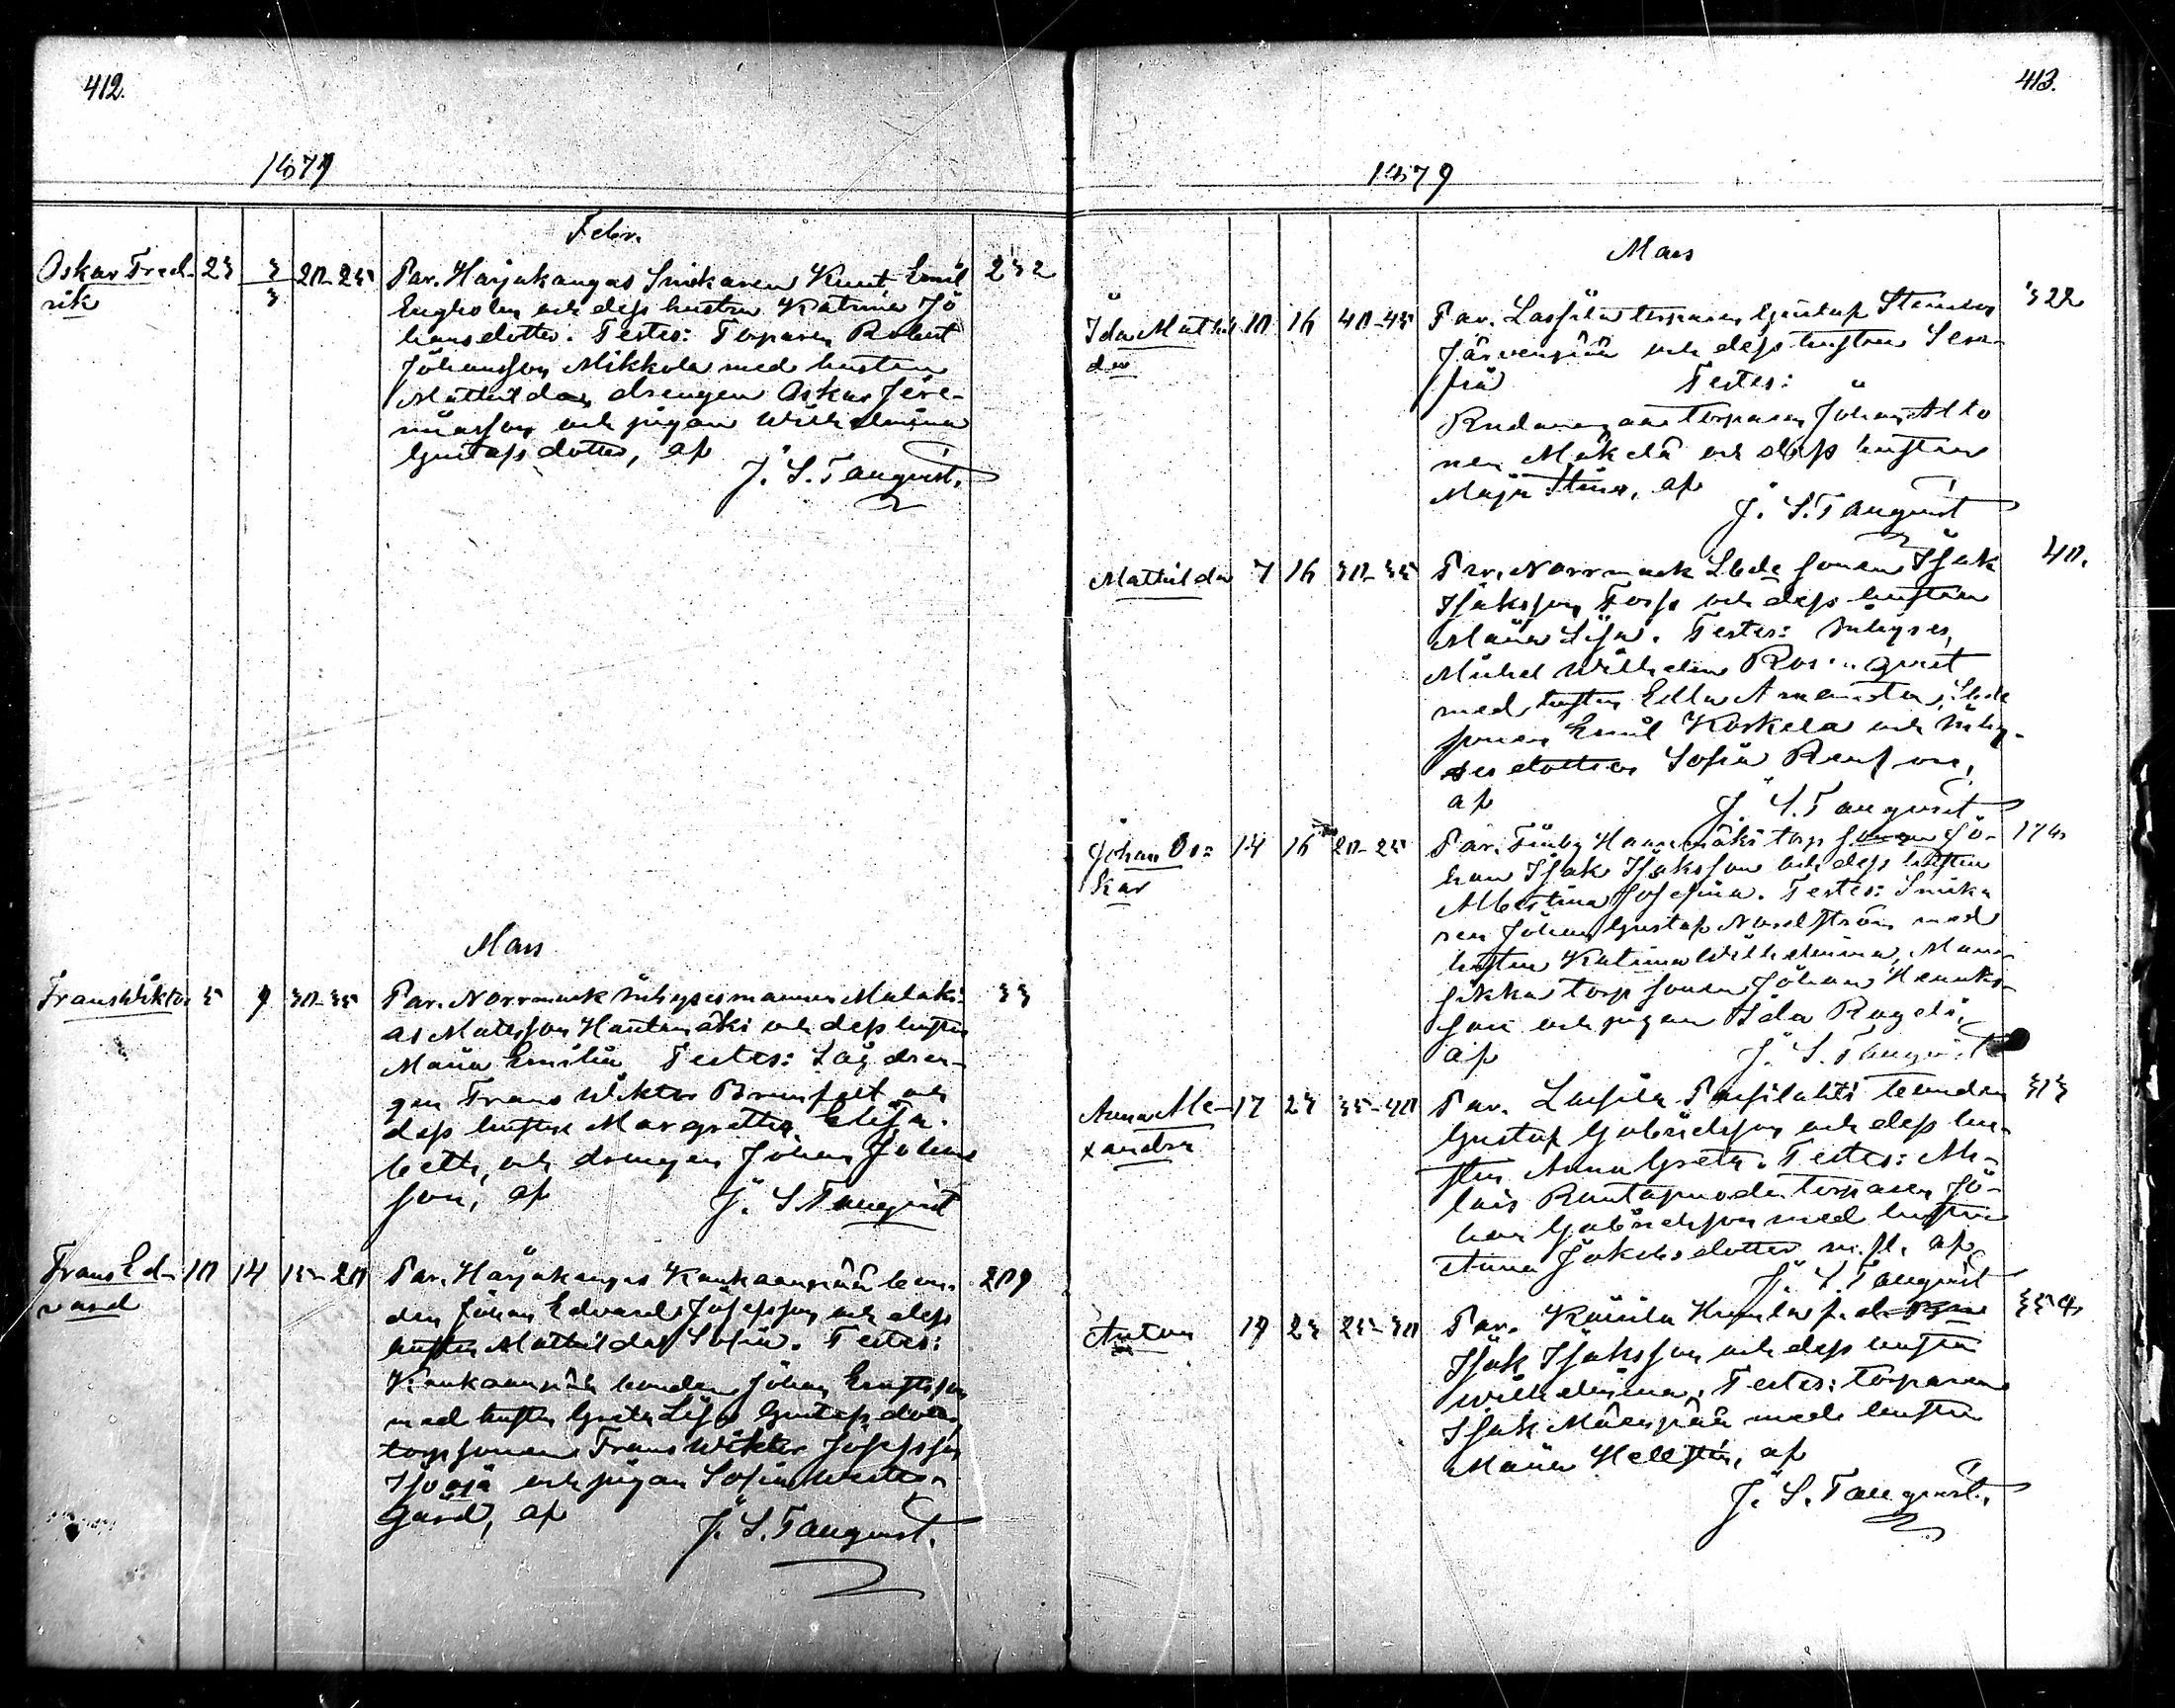 412.
1879
Febr.
Oskar Fred- 23 3/3 20-25 Par. Harjakangas Snickaren Knut Emil 232
rik Engholm och dess hustru Katrina Jo
hansdotter. Testes: Torparen Robert
Johansson Mikkola med hustru
Mathilda, drengen Oskar Jere-
miasson och pigan Wilhelmina
Gustafsdotter, af
J. S. Tanqvist.
Mars
Frans Wiktor 5 9 30-35 Par. Norrmark Inhysesmannen Malaki- 33
as Matsson Hautamäki och dess hustru
Maria Emilia Testes: Såg dren-
gen Frans Wiktor Brunfelt och
dess hustru Margretha Elisa-
beth, och drengen Johan Johans
son, af J. S. Tanqvist
Frans Ed- 10 14 15-20 Par. Harjakangas Kankaanpää bon- 209
vard den Johan Edvard Josefsson och dess
hustru Mathilda Sofia. Testes:
Kankaanpää bonden Johan Ernstsson
med hustru Greta Lisa Gustafsdotter,
torpsonen Frans Wiktor Josefsson
Isooja och pigan Sofia Wester-
gård, af J. S. Tanqvist.
413.
1879
Mars
Ida Mathil 10 16 40-45 Par. Lassila torparen Gustaf Stenius 322
da Järvenpää och dess hustru Sera-
fia Testes:
torparen Johan Alto
nen Mäkelä och dess hustru
Maja Stina, af
J. S. Tanqvist
Mathilda 7 16 30-35 Par. Norrmark Sbde sonen Isak 40.
Isaksson Forss och dess hustru
Maria Lisa. Testes: Inhyses,
Mickel Wilhelm Rosenqvist
med hustru Edla Amanda, Sbde
sonen Emil Koskela och Inhy-
ses dottren Sofia
af J. S. Tanqvist
Johan Os= 14 16 20-25 Par. Finby Hannimäki torp sonen Jo- 178
kar han Isak Isaksson och dess hustru
Albertina Josefina. Testes: Snicka
ren Johan Gustaf Nordström med
hustru Katrina Wilhelmina,
torp sonen Johan Henriks-
son och pigan Ida
af J. S. Tanqvist
Anna Ale- 17 23 35-40 Par. Lassila Passilahti bonden 313
xandra Gustaf Gabrielsson och dess hu-
stru Anna Greta. Testes: Ah-
lais torparen Jo-
han Gabrielsson med hustru
Anna Jakobsdotter m. fl. af
J. S. Tanqvist
Anton 19 23 25-30 Par. Kairila f. d.
Isak Isaksson och dess hustru
Wilhelmina. Testes: torparen
Isak Mäenpää med hustru
Maria Hellsten, af
J. S. Tanqvist.